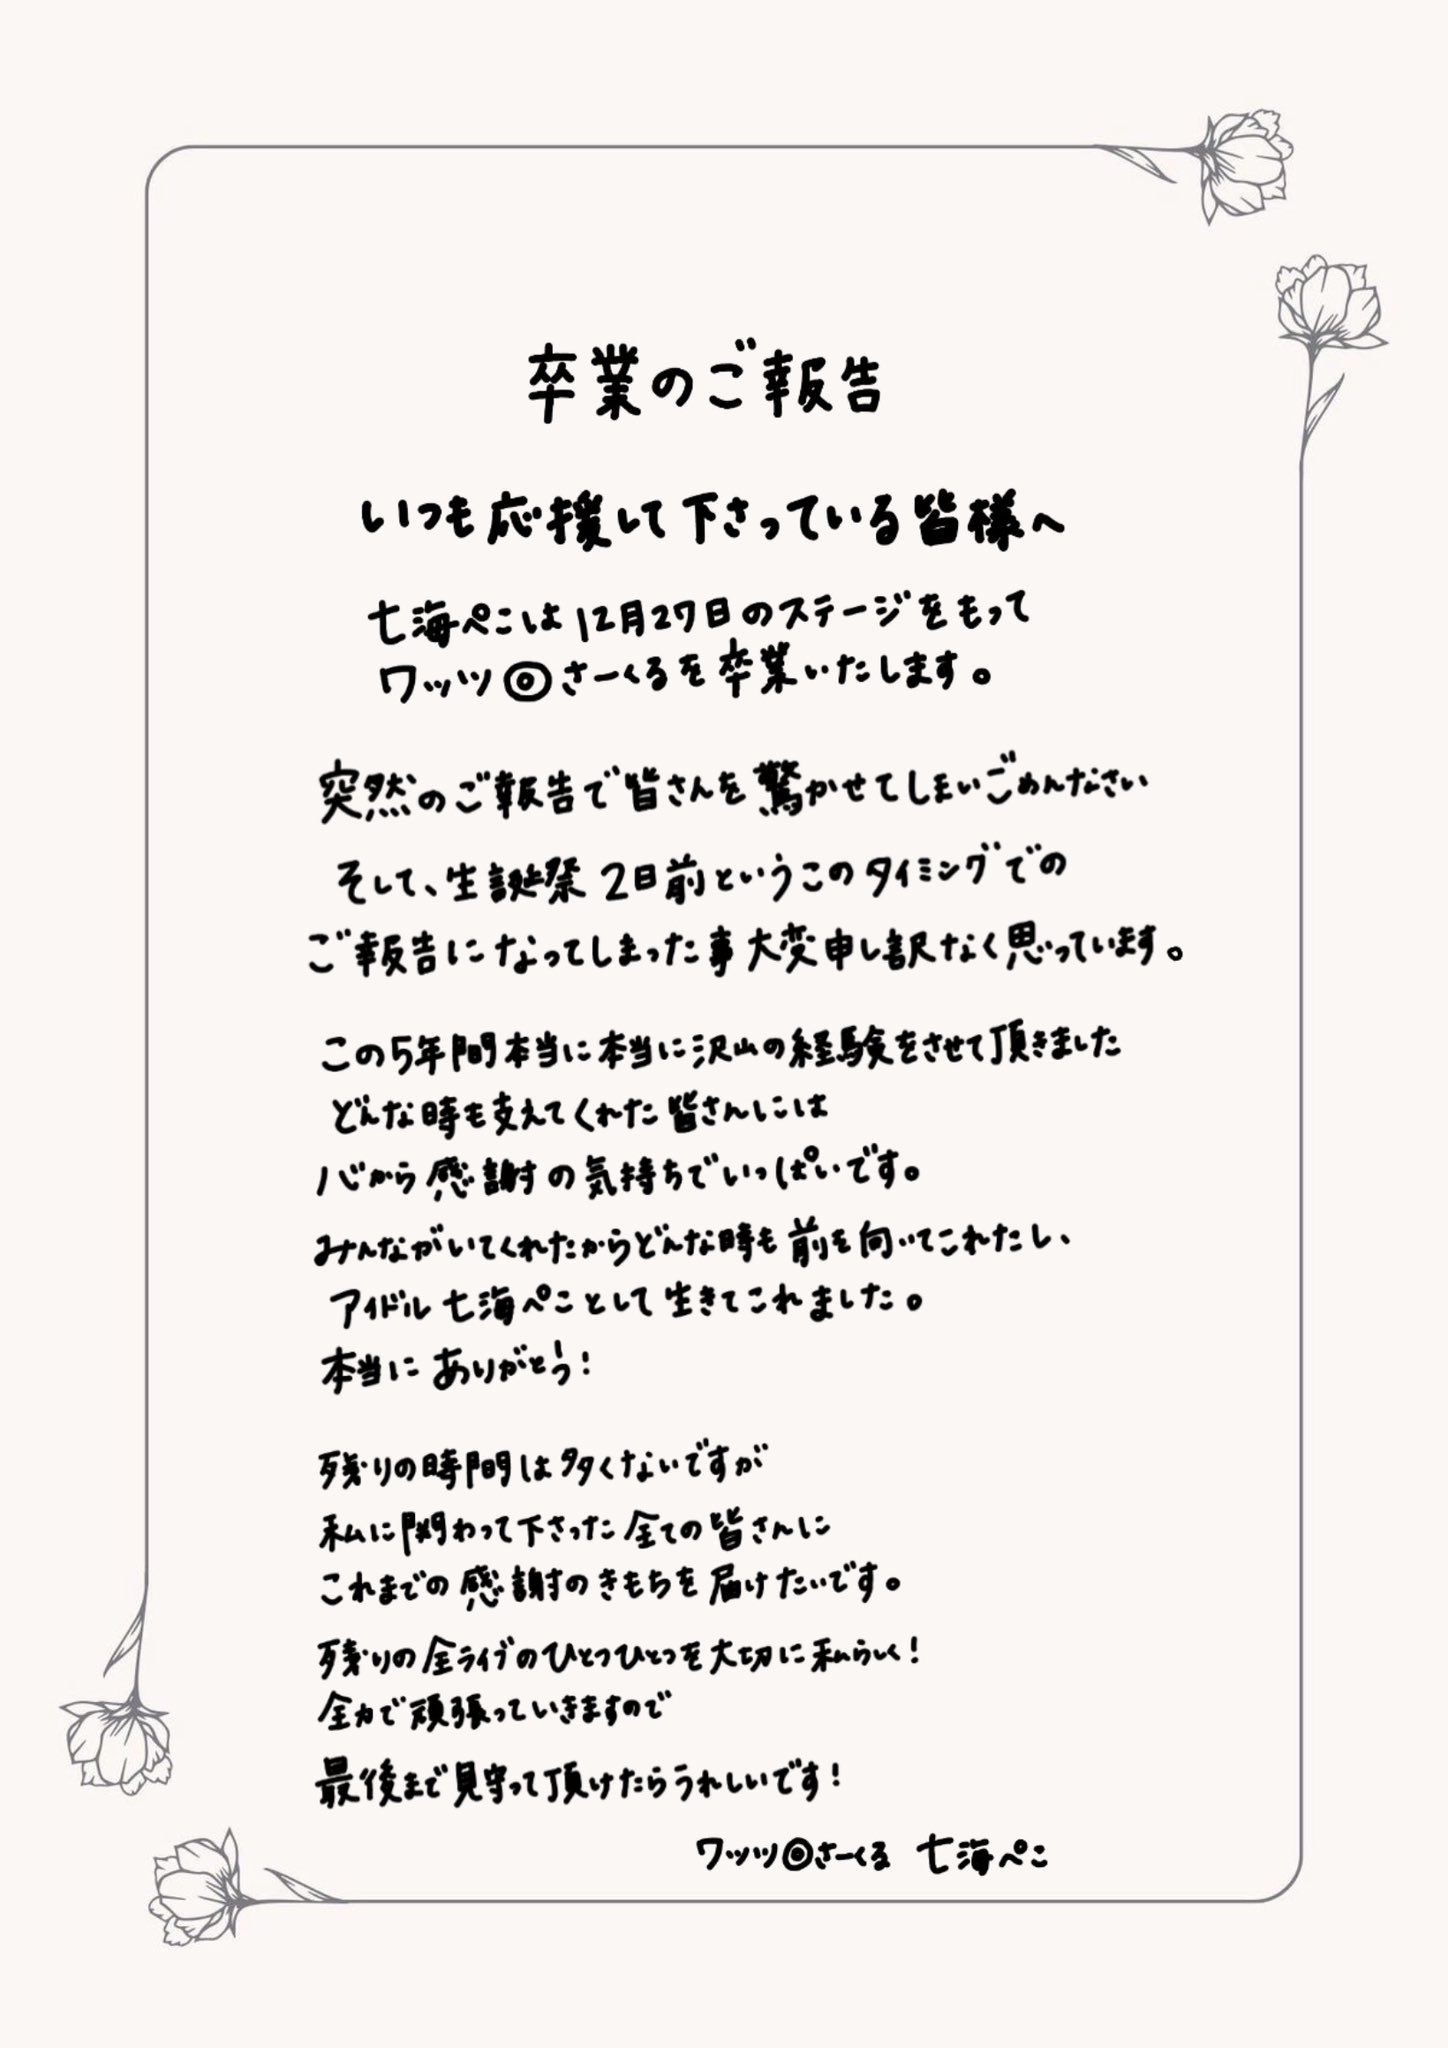 卒業のご報告
いつも応援して下さっている皆様へ
七海ぺこは12月27日のステージをもって
ワッツ◎さーくるを卒業いたします。
突然のご報告で皆さんを驚かせてしまいごめんなさい
そして、生誕祭2日前というこのタイミングでの
ご報告になってしまった事大変申し訳なく思っています。
この5年間本当に本当に沢山の経験をさせて頂きました
どんな時も支えてくれた皆さんには
心から感謝の気持ちでいっぱいです。
みんながいてくれたからどんな時も前を向いてこれたし、
アイドル七海ぺことして生きてこれました。
本当にありがとう!
残りの時間は多くないですが
私に関わって下さった全ての皆さんに
これまでの感謝のきもちを届けたいです。
残りの全ライブのひとつひとつを大切に私らしく!
全力で頑張っていきますので
最後まで見守って頂けたらうれしいです!
ワッツ◎さーくる 七海ぺこ